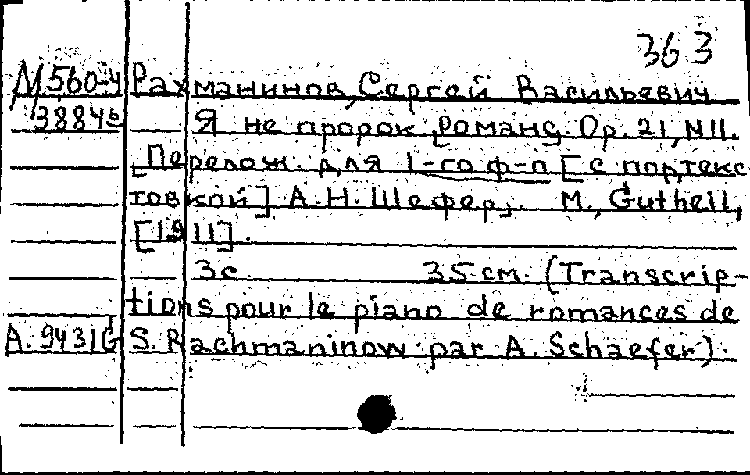 363
М560-4 Рахманинов, Сергей Васильевич
3884ъ Я не пророк. Романс. Op. 21, N11.
[Перелож. для 1-го ф-п [с подтекс
товкой] А.Н. Шефер]. М., Gutheil,
[1911].
3с 35 см. (Transcrip-
tions pour le piano de romances de
A.9431G S. Rachmaninow par A. Schaefer).